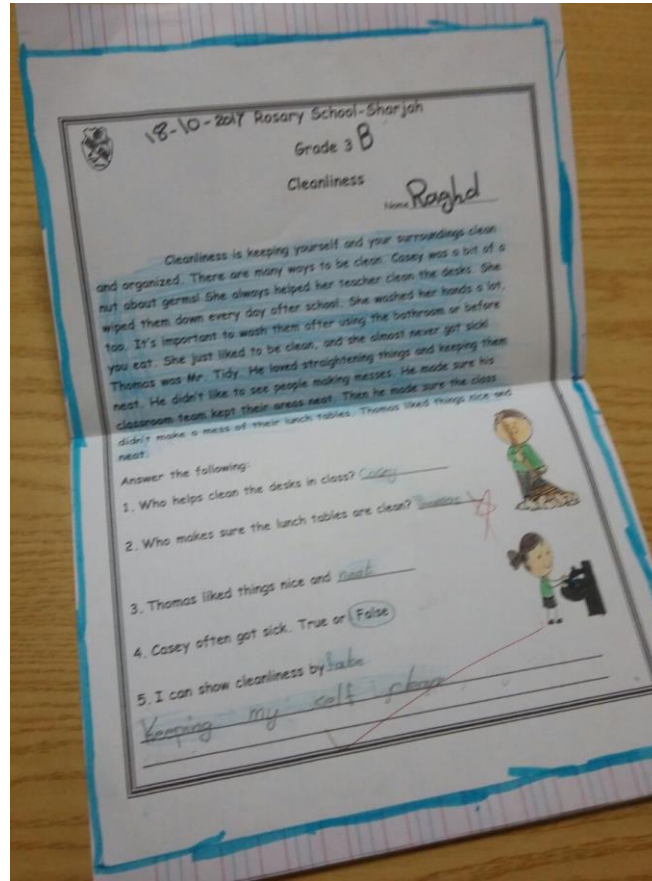 18-10-2017 Rosary School-Sharjah
Grade 3 B
Cleanliness
Name Raghd
Cleanliness is keeping yourself and your surroundings clean
and organized. There are many ways to be clean. Casey was a bit of a
nut about germs! She always helped her teacher clean the desks. She
wiped them down every day after school. She washed her hands a lot,
too. It's important to wash them after using the bathroom or before
you eat. She just liked to be clean, and she almost never got sick!
Thomas was Mr. Tidy. He loved straightening things and keeping them
neat. He didn't like to see people making messes. He made sure his
classroom team kept their areas neat. Then he made sure the class
didn't make a mess of their lunch tables. Thomas liked things nice and
neat.
Answer the following:
1. Who helps clean the desks in class? Casey
2. Who makes sure the lunch tables are clean? Thomas
3. Thomas liked things nice and neat
4. Casey often got sick. True or False
5. I can show cleanliness by
Keeping my self clean